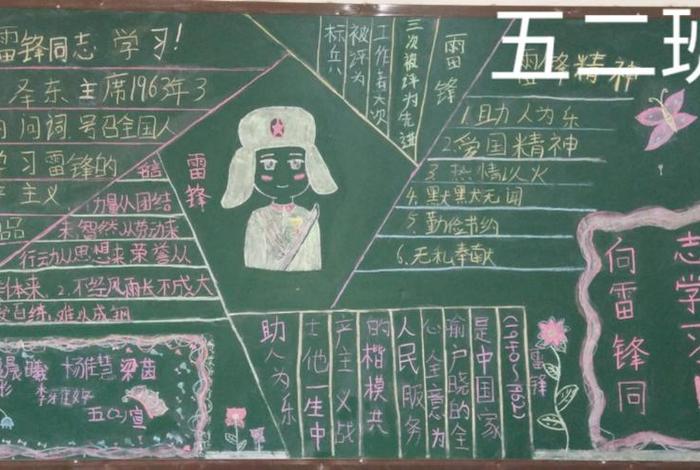 五二班
雷锋同志 学习!
泽东主席1963年3
问词,号召全国人
学习雷锋的
主义
品
书信
力量从团结
来,智然从劳动来
行动从思想来荣誉从
体来.2.不经风雨长不成大
百练,难以成钢
杨佳慧 梁茵
五(2)宣
雷锋
标兵
被评为
工作者六次
三次被评为先进
雷锋
雷锋精神
1.助人为乐
2.爱国精神
3.热情似火
4.默默无闻
5.勤俭节约
6.无私奉献
雷锋
(1940~1962)
是中国家
喻户晓的全
心全意为
人民服务
的楷模共
产主义战
士他一生中
助人为乐
志学习
向雷锋同